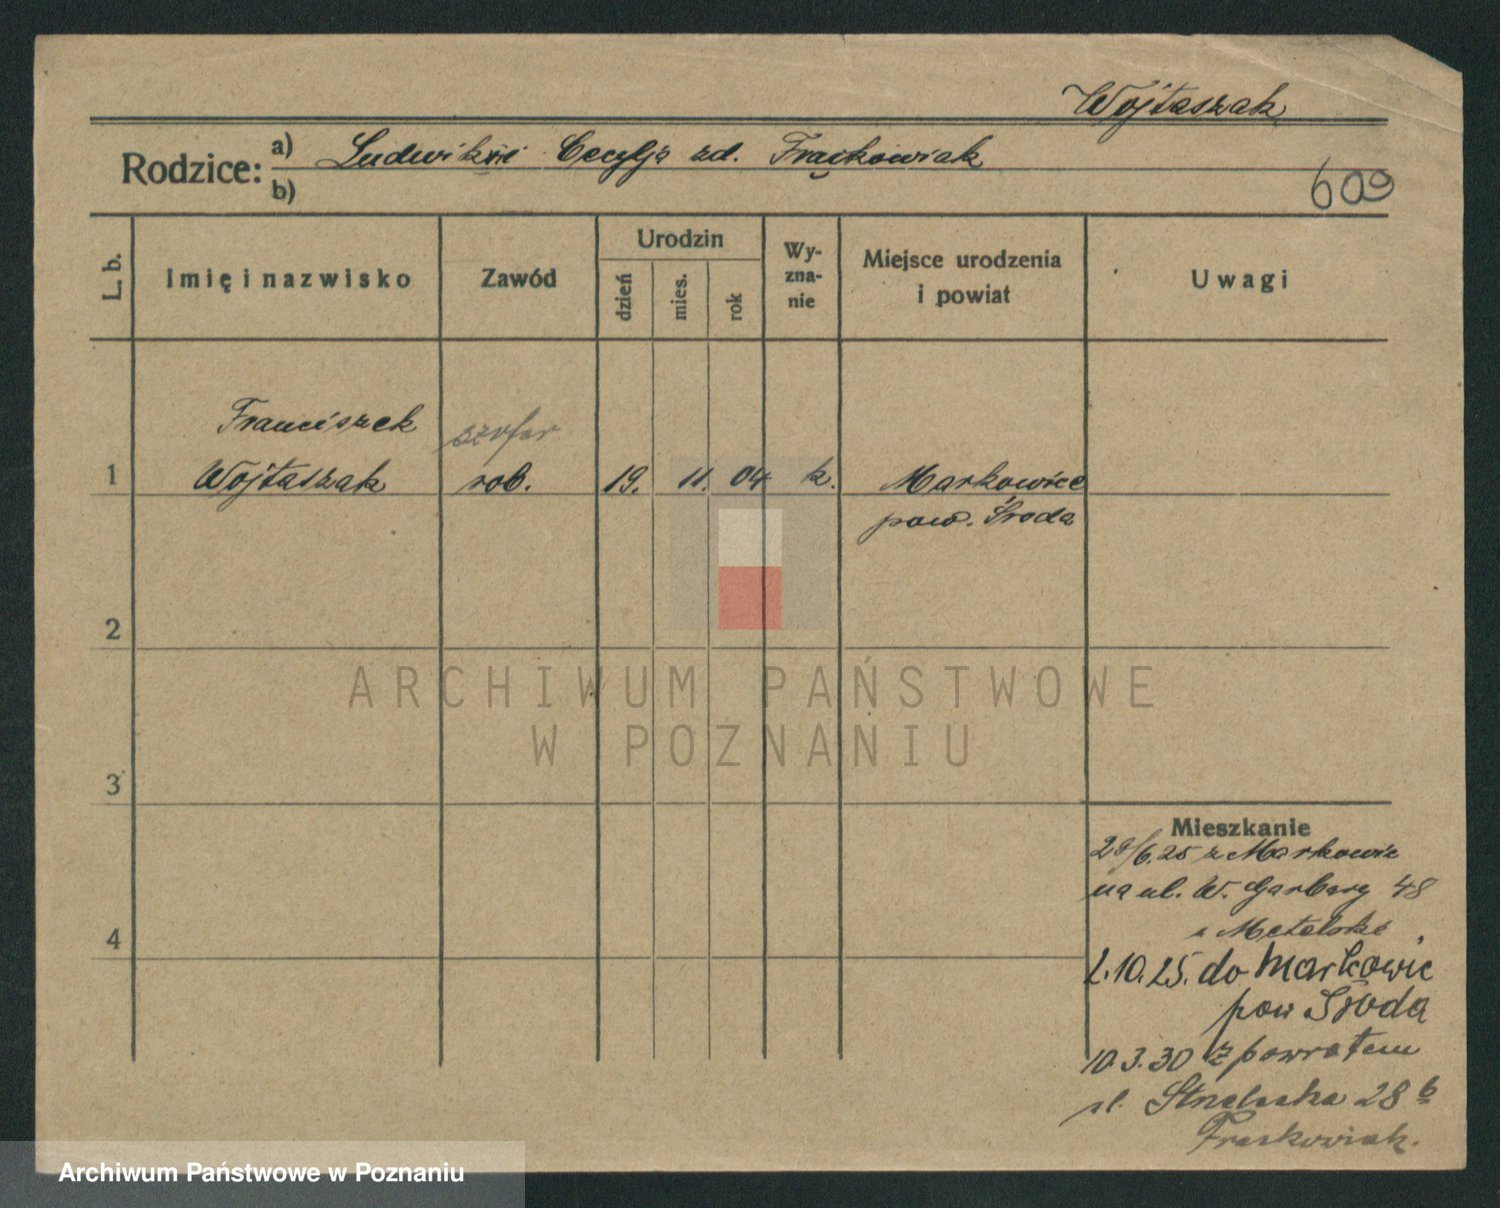 Wojtaszak
Rodzice: a) Ludwik Cecylja zd. Frąckowiak
b)
609
L. b.
Imię i nazwisko
Zawód
Urodzin
dzień
mies.
rok
Wy-
zna-
nie
Miejsce urodzenia
i powiat
Uwagi
Franciszek szofer
1 Wojtaszak rob. 19. 11. 04 k. Markowice
pow. Środa
2
ARCHIWUM PAŃSTWOWE
W POZNANIU
3
Mieszkanie
28/6.25 z Markowic
na ul. W. Garbary 48
4
2.10.25. do Markowic
pow Środa
10.3.30 z powrotem
ul. Strzelecka 28
Frąckowiak.
Archiwum Państwowe w Poznaniu